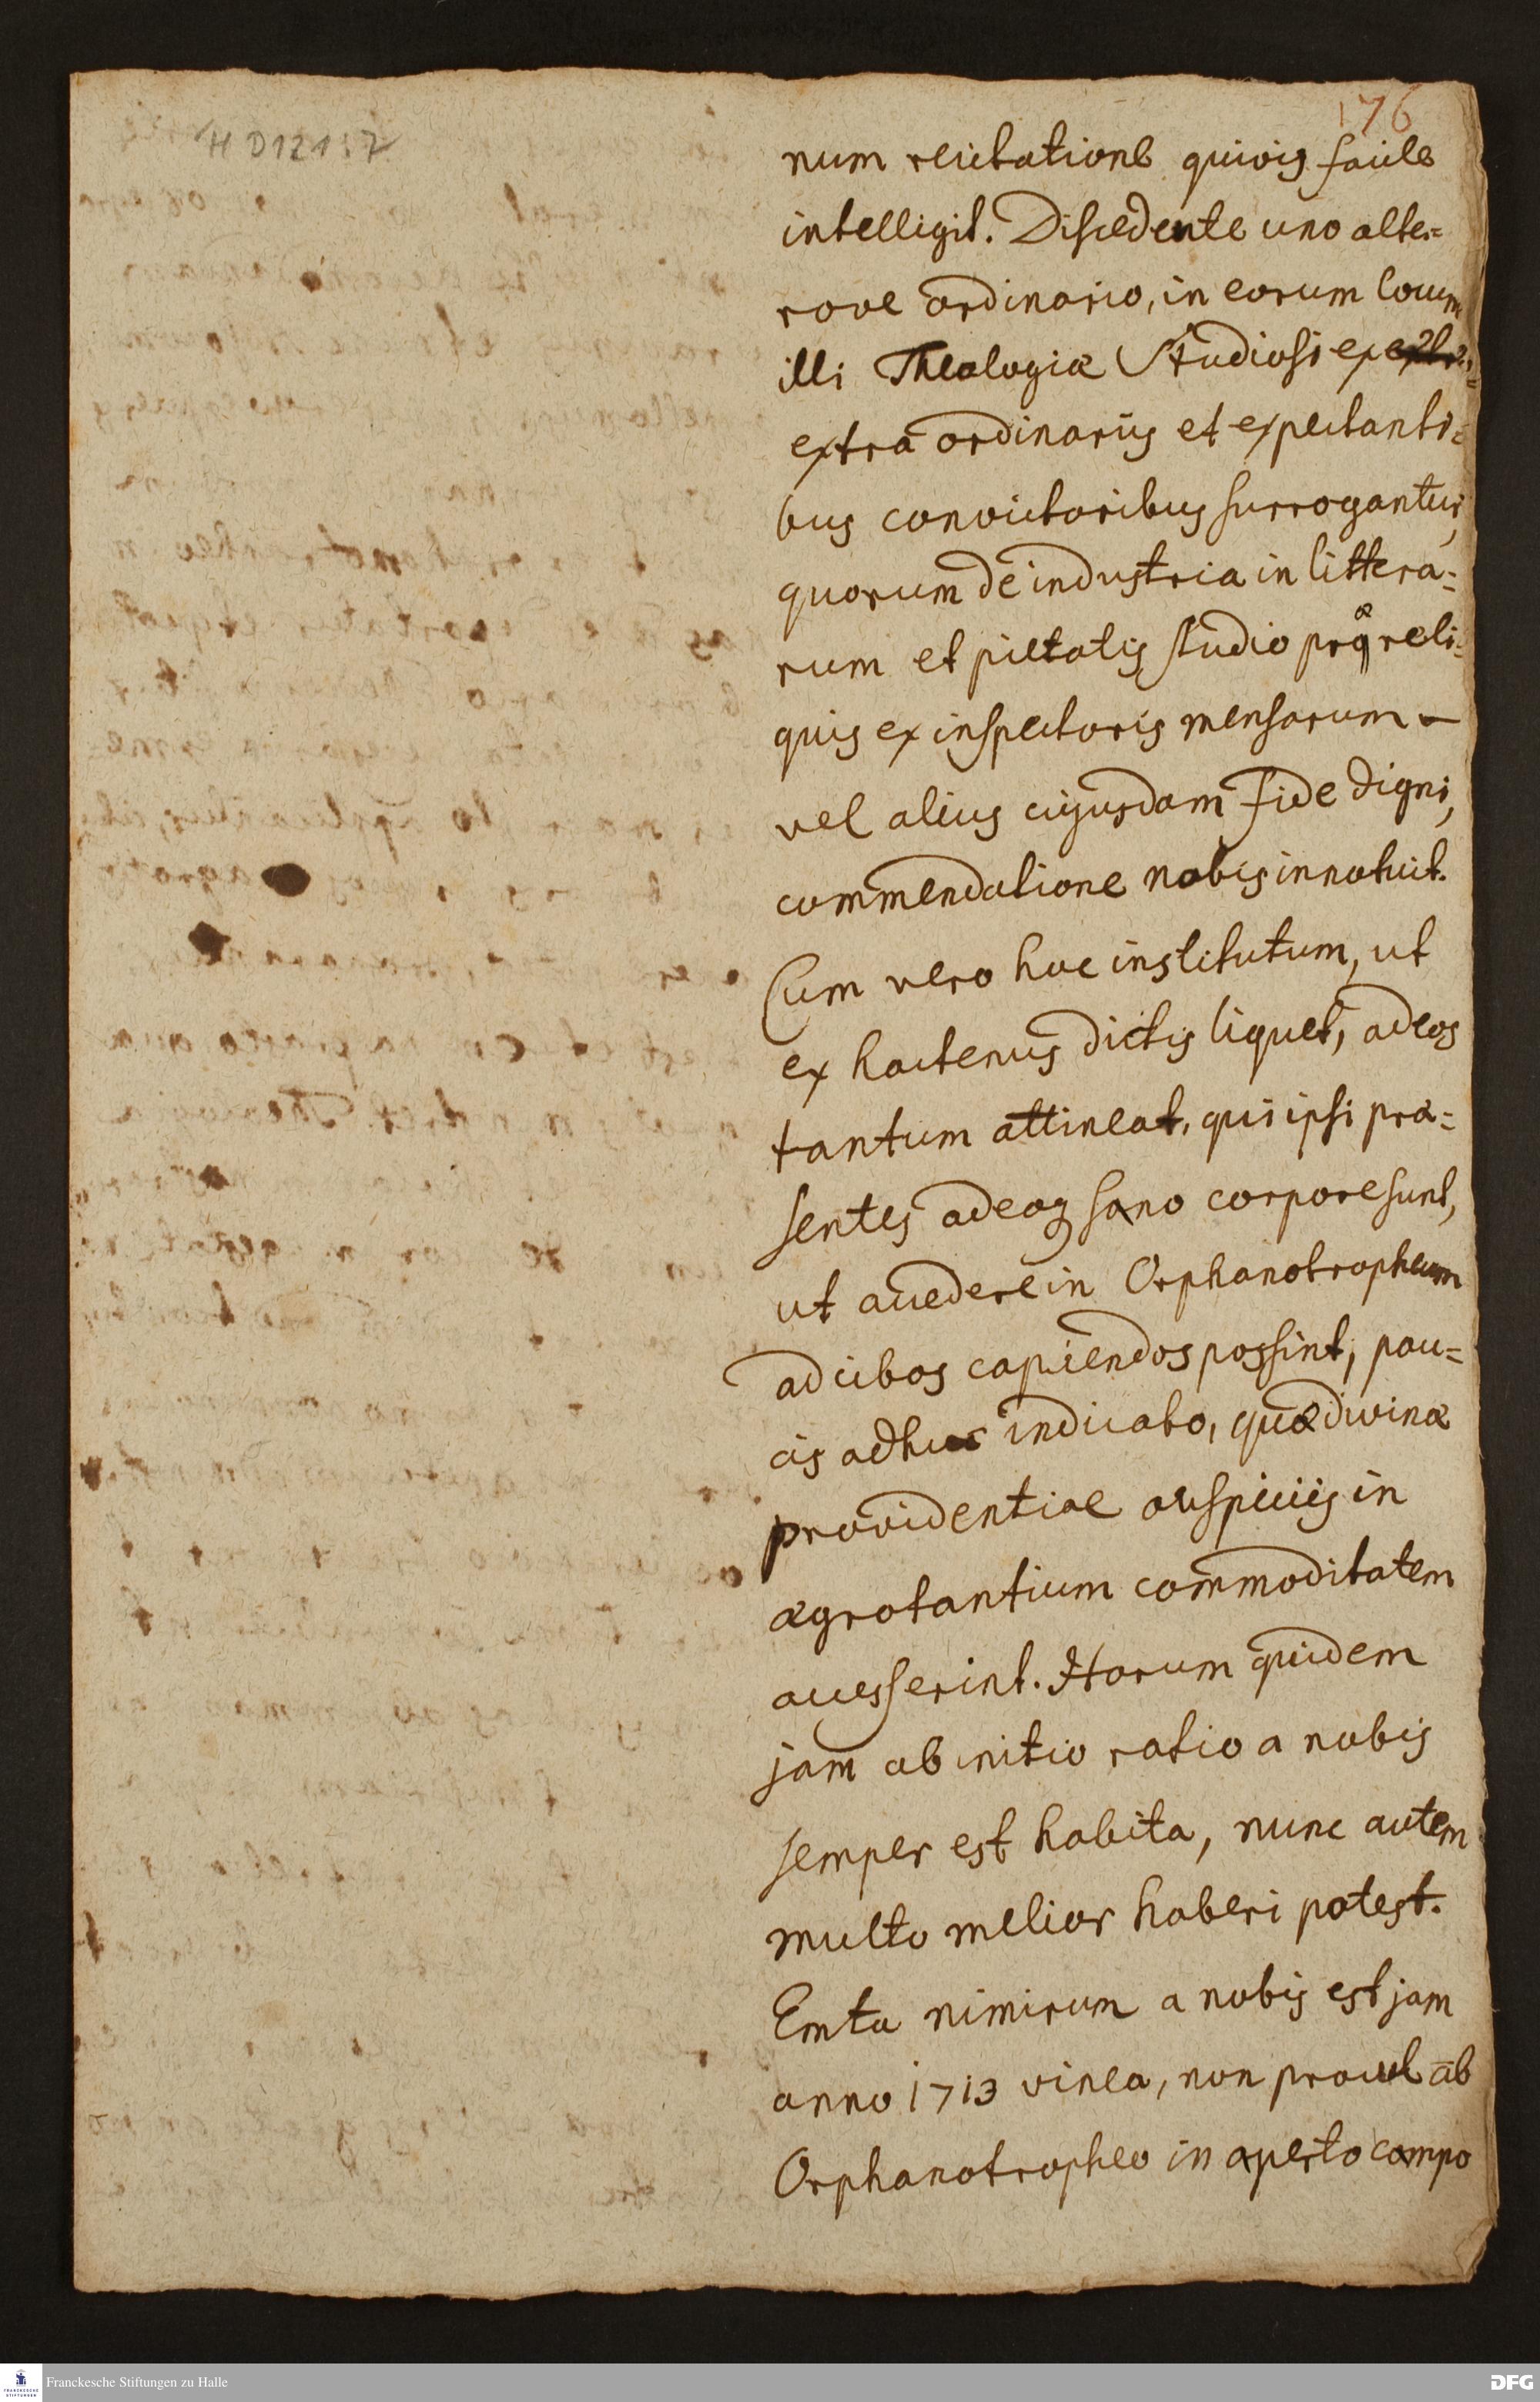 176
H D121:7
num recitatione quivis facile
intelligit. Discedente uno alte-
rove ordinario, in eorum locum
illi Theologiæ Studiosi ex
extra ordinariis et expectanti-
bus convictoribus surrogantur,
quorum de industria in littera-
rum et pietatis studio præ reli-
quis ex inspectoris mensarum
vel alius cujusdam fide digni,
commendatione nobis innotuit.
Cum vero hoc institutum, ut
ex hactenus dictis liquet, ad eos
tantum attineat, qui ipsi præ-
sentes adeoq; sano corpore sunt,
ut accedere in Orphanotropheum
ad cibos capiendos possint, pau-
cis adhuc indicabo, quæ divinæ
providentiae auspiciis in
ægrotantium commoditatem
accesserint. Horum quidem
jam ab initio ratio a nobis
semper est habita, nunc autem
multo melior haberi potest.
Emta nimirum a nobis est jam
anno 1713 vinea, non procul ab
Orphanotropheo in aperto campo
Franckesche Stiftungen zu Halle
DFG